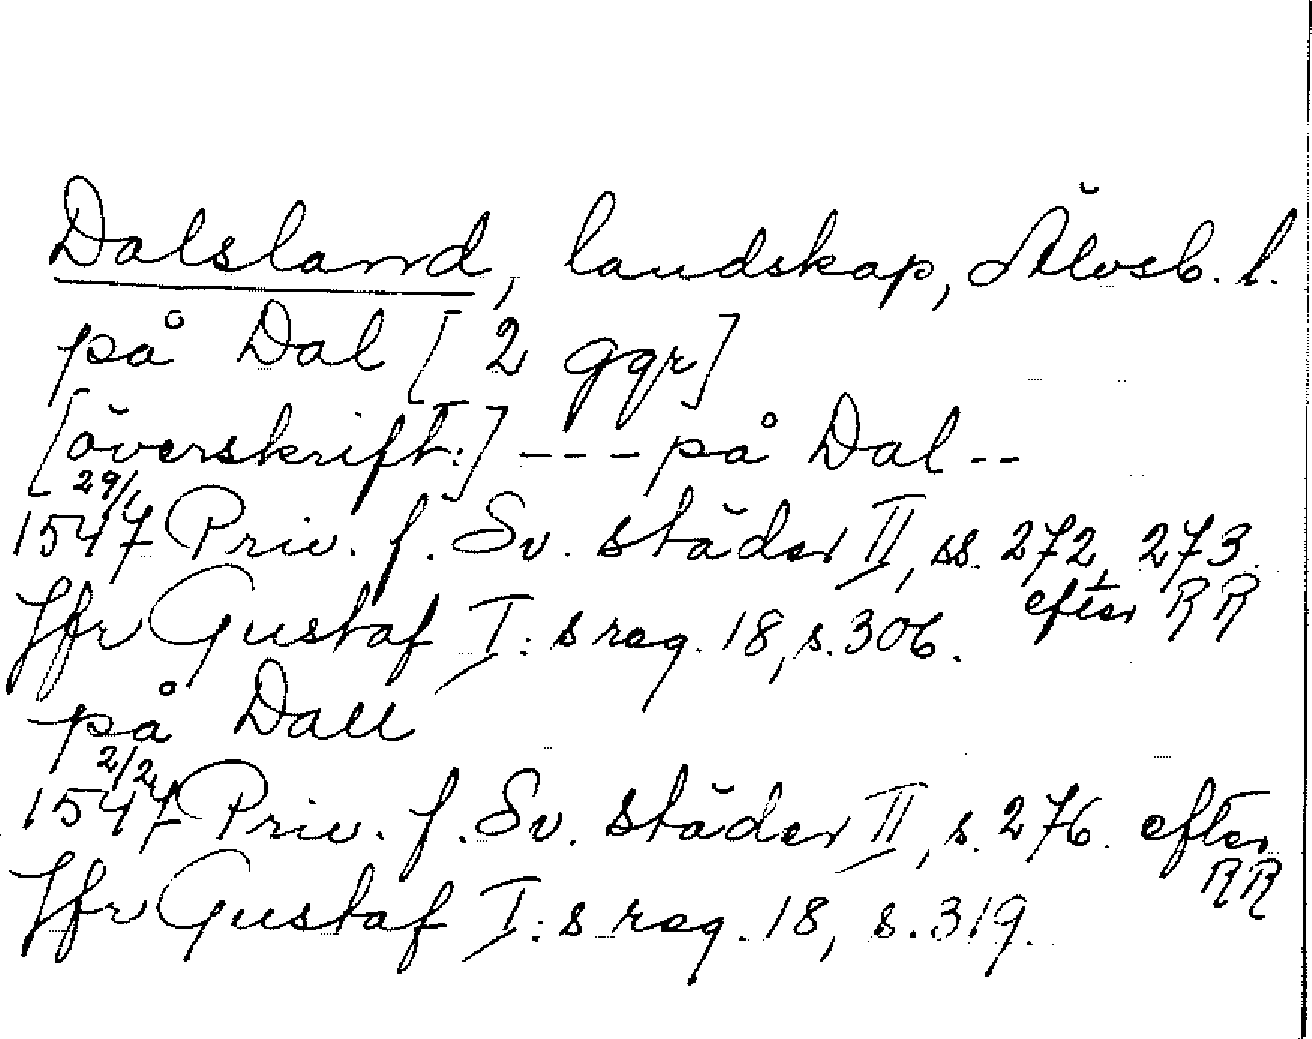 Dalsland, landskap, Älvsb. l.
på Dal [2 ggr]
[överskrift:] --- på Dal --
29/1
1547 Priv. f. Sv. städer II, ss. 272, 273.
efter RR
Jfr Gustaf I:s reg. 18, s. 306.
på Dall
2/2
1547 Priv. f. Sv. städer II, s. 276. efter
RR
Jfr Gustaf I:s reg. 18, s. 319.